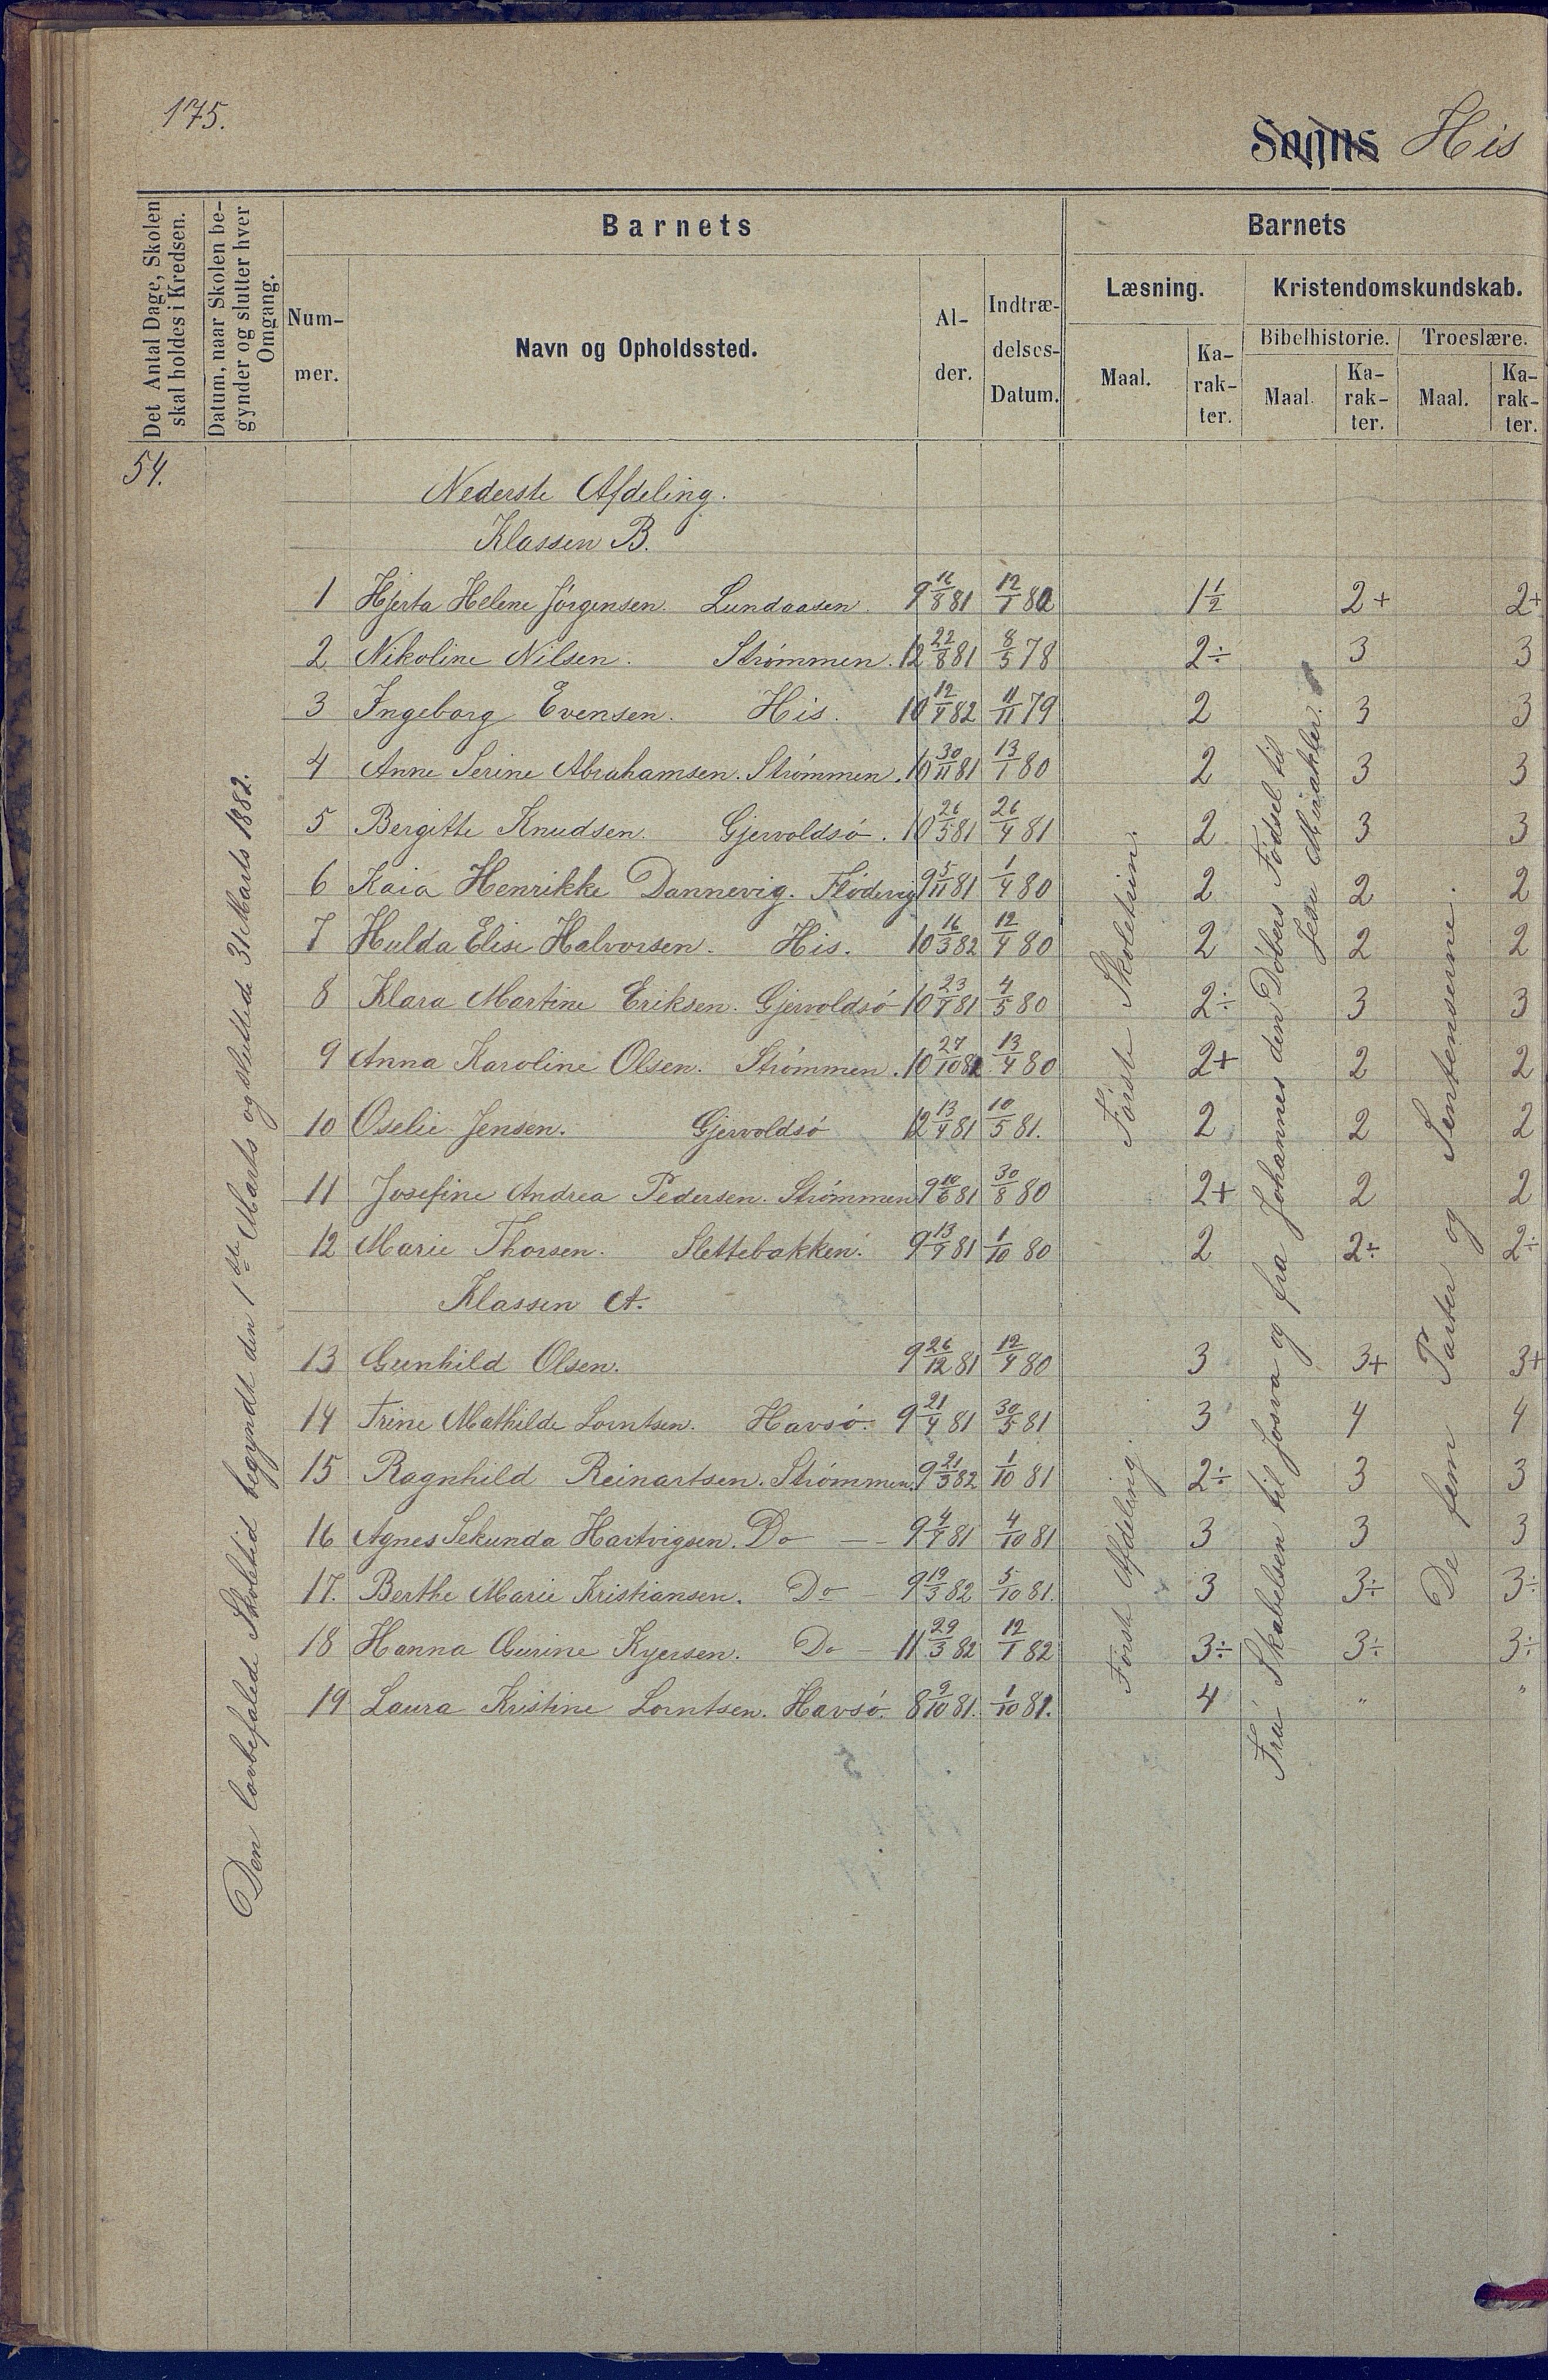 175.
Sogns His
Det Antal Dage, Skolen skal holdes i Kredsen.
Datum, naar Skolen begynder og slutter hver Omgang.
Barnets
Nummer.
Navn og Opholdssted.
Alder.
Indtrædelses-Datum.
Barnets
Læsning.
Kristendomskundskab.
Bibelhistorie.
Troeslære.
Maal.
Karakter.
Maal.
Karakter.
Maal.
Karakter.
54.
Den lovbefalede Skoletid begyndt den 1ste Marts og sluttede 31 Marts 1882.
Nederste Afdeling.
Klassen B.
1 Hjerta Helene Jörgensen. Lundaasen. 9 16/8 81 12/1 80 1½ 2+ 2+
2 Nikoline Nilsen. Strömmen. 12 22/8 81 8/5 78 2÷ 3 3
3 Ingeborg Evensen. His. 10 12/1 82 11/11 79 2 3 3
4 Anne Serine Abrahamsen. Strömmen. 10 30/11 81 13/1 80 2 3 3
5 Bergitte Knudsen. Gjervoldsö. 10 26/5 81 26/4 81 2 3 3
6 Kaia Henrikke Dannevig. Flödevig 9 5/11 81 1/4 80 2 2 2
7 Hulda Elise Halvorsen. His. 10 16/3 82 12/4 80 2 2 2
8 Klara Martine Eriksen. Gjervoldsö 10 23/9 81 4/5 80 2÷ 3 3
9 Anna Karoline Olsen. Strömmen. 10 27/10 81 13/4 80 2+ 2 2
10 Oselie Jensen. Gjervoldsö 12 13/4 81 10/5 81. 2 2 2
11 Josefine Andrea Pedersen. Strömmen 9 10/6 81 30/8 80 2+ 2 2
12 Marie Thorsen. Slettebakken. 9 13/9 81 1/10 80 2 2÷ 2÷
Klassen A.
13 Gunhild Olsen. 9 26/12 81 12/4 80 3 3+ 3+
14 Trine Mathilde Lorntsen. Havsö. 9 21/4 81 30/5 81 3 4 4
15 Ragnhild Reinartsen. Strömmen. 9 21/3 82 1/10 81 2÷ 3 3
16 Agnes Sekunda Hartvigsen. Do — 9 4/9 81 4/10 81 3 3 3
17. Berthe Marie Kristiansen. Do 9 19/3 82 5/10 81. 3 3÷ 3÷
18 Hanna Gurine Kyersen. Do — 11 29/3 82 12/1 82 3÷ 3÷ 3÷
19 Laura Kristine Lorntsen. Havsö. 8 9/10 81. 1/10 81. 4 " "
Förste Afdeling.
Förste Skoletrin.
Fra Skabelsen til Josva og fra Johannes den Döbers Födsel til
Jesu Mirakler.
De fem Parter og Sentenserne.